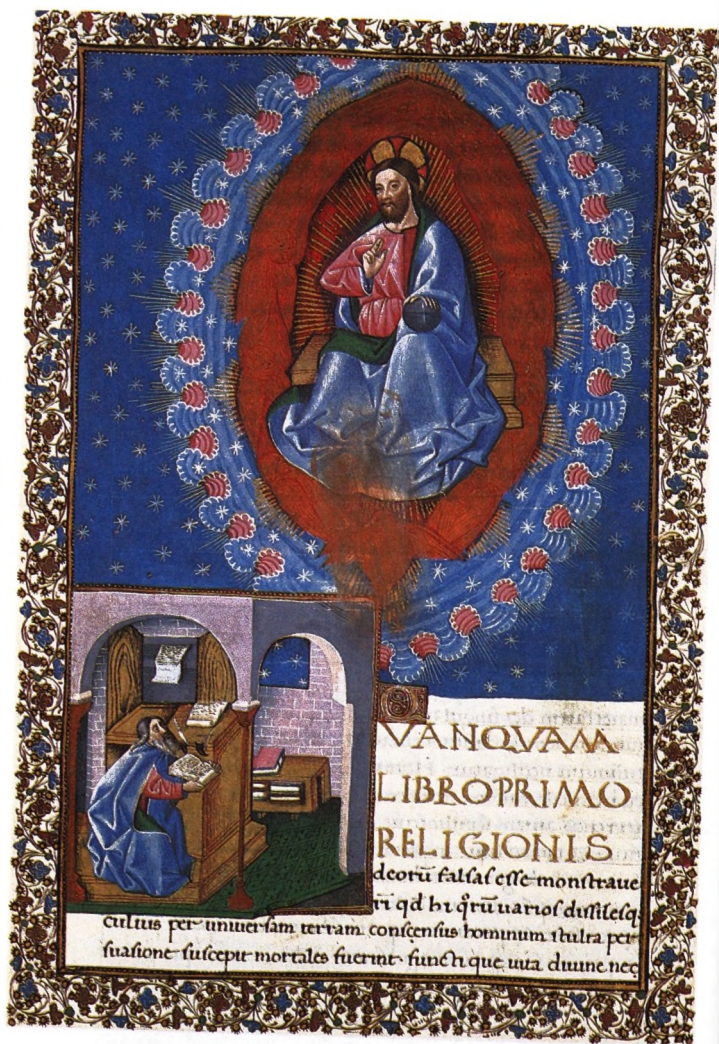 QVANQVAM
LIBRO PRIMO
RELIGIONIS
deorũ falsas esse monstraue
rĩ qd hi q̃rũ uarios dissilesq;
cultus per uniuersam terram conscensus hominum stulta per
suasione suscepit mortales fuerint functi que uita diuine nec